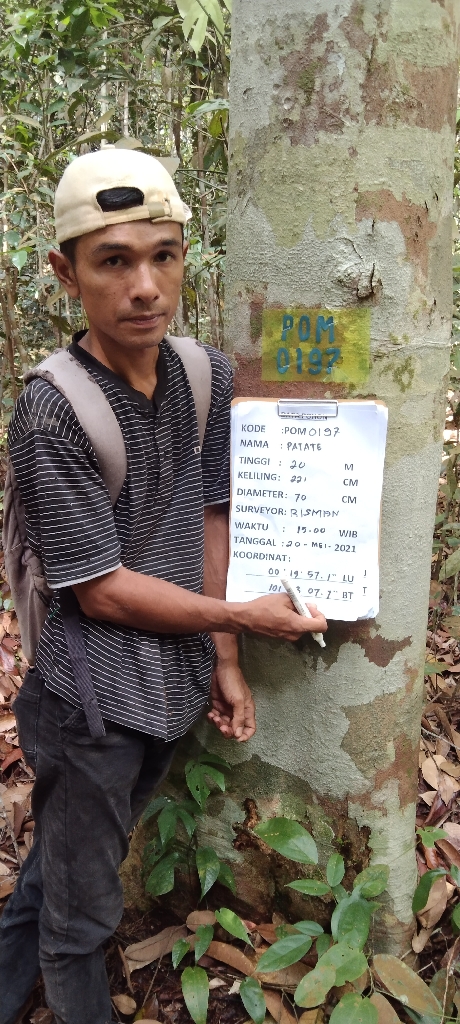 POM
0197
KODE :POM0197
NAMA :PATATE
TINGGI : 20 M
KELILING: 221 CM
DIAMETER: 70 CM
SURVEYOR: RISMAN
WAKTU : 15.00 WIB
TANGGAL :20-MEI-2021
KOORDINAT:
00° 19' 57.1" LU
07.7" BT